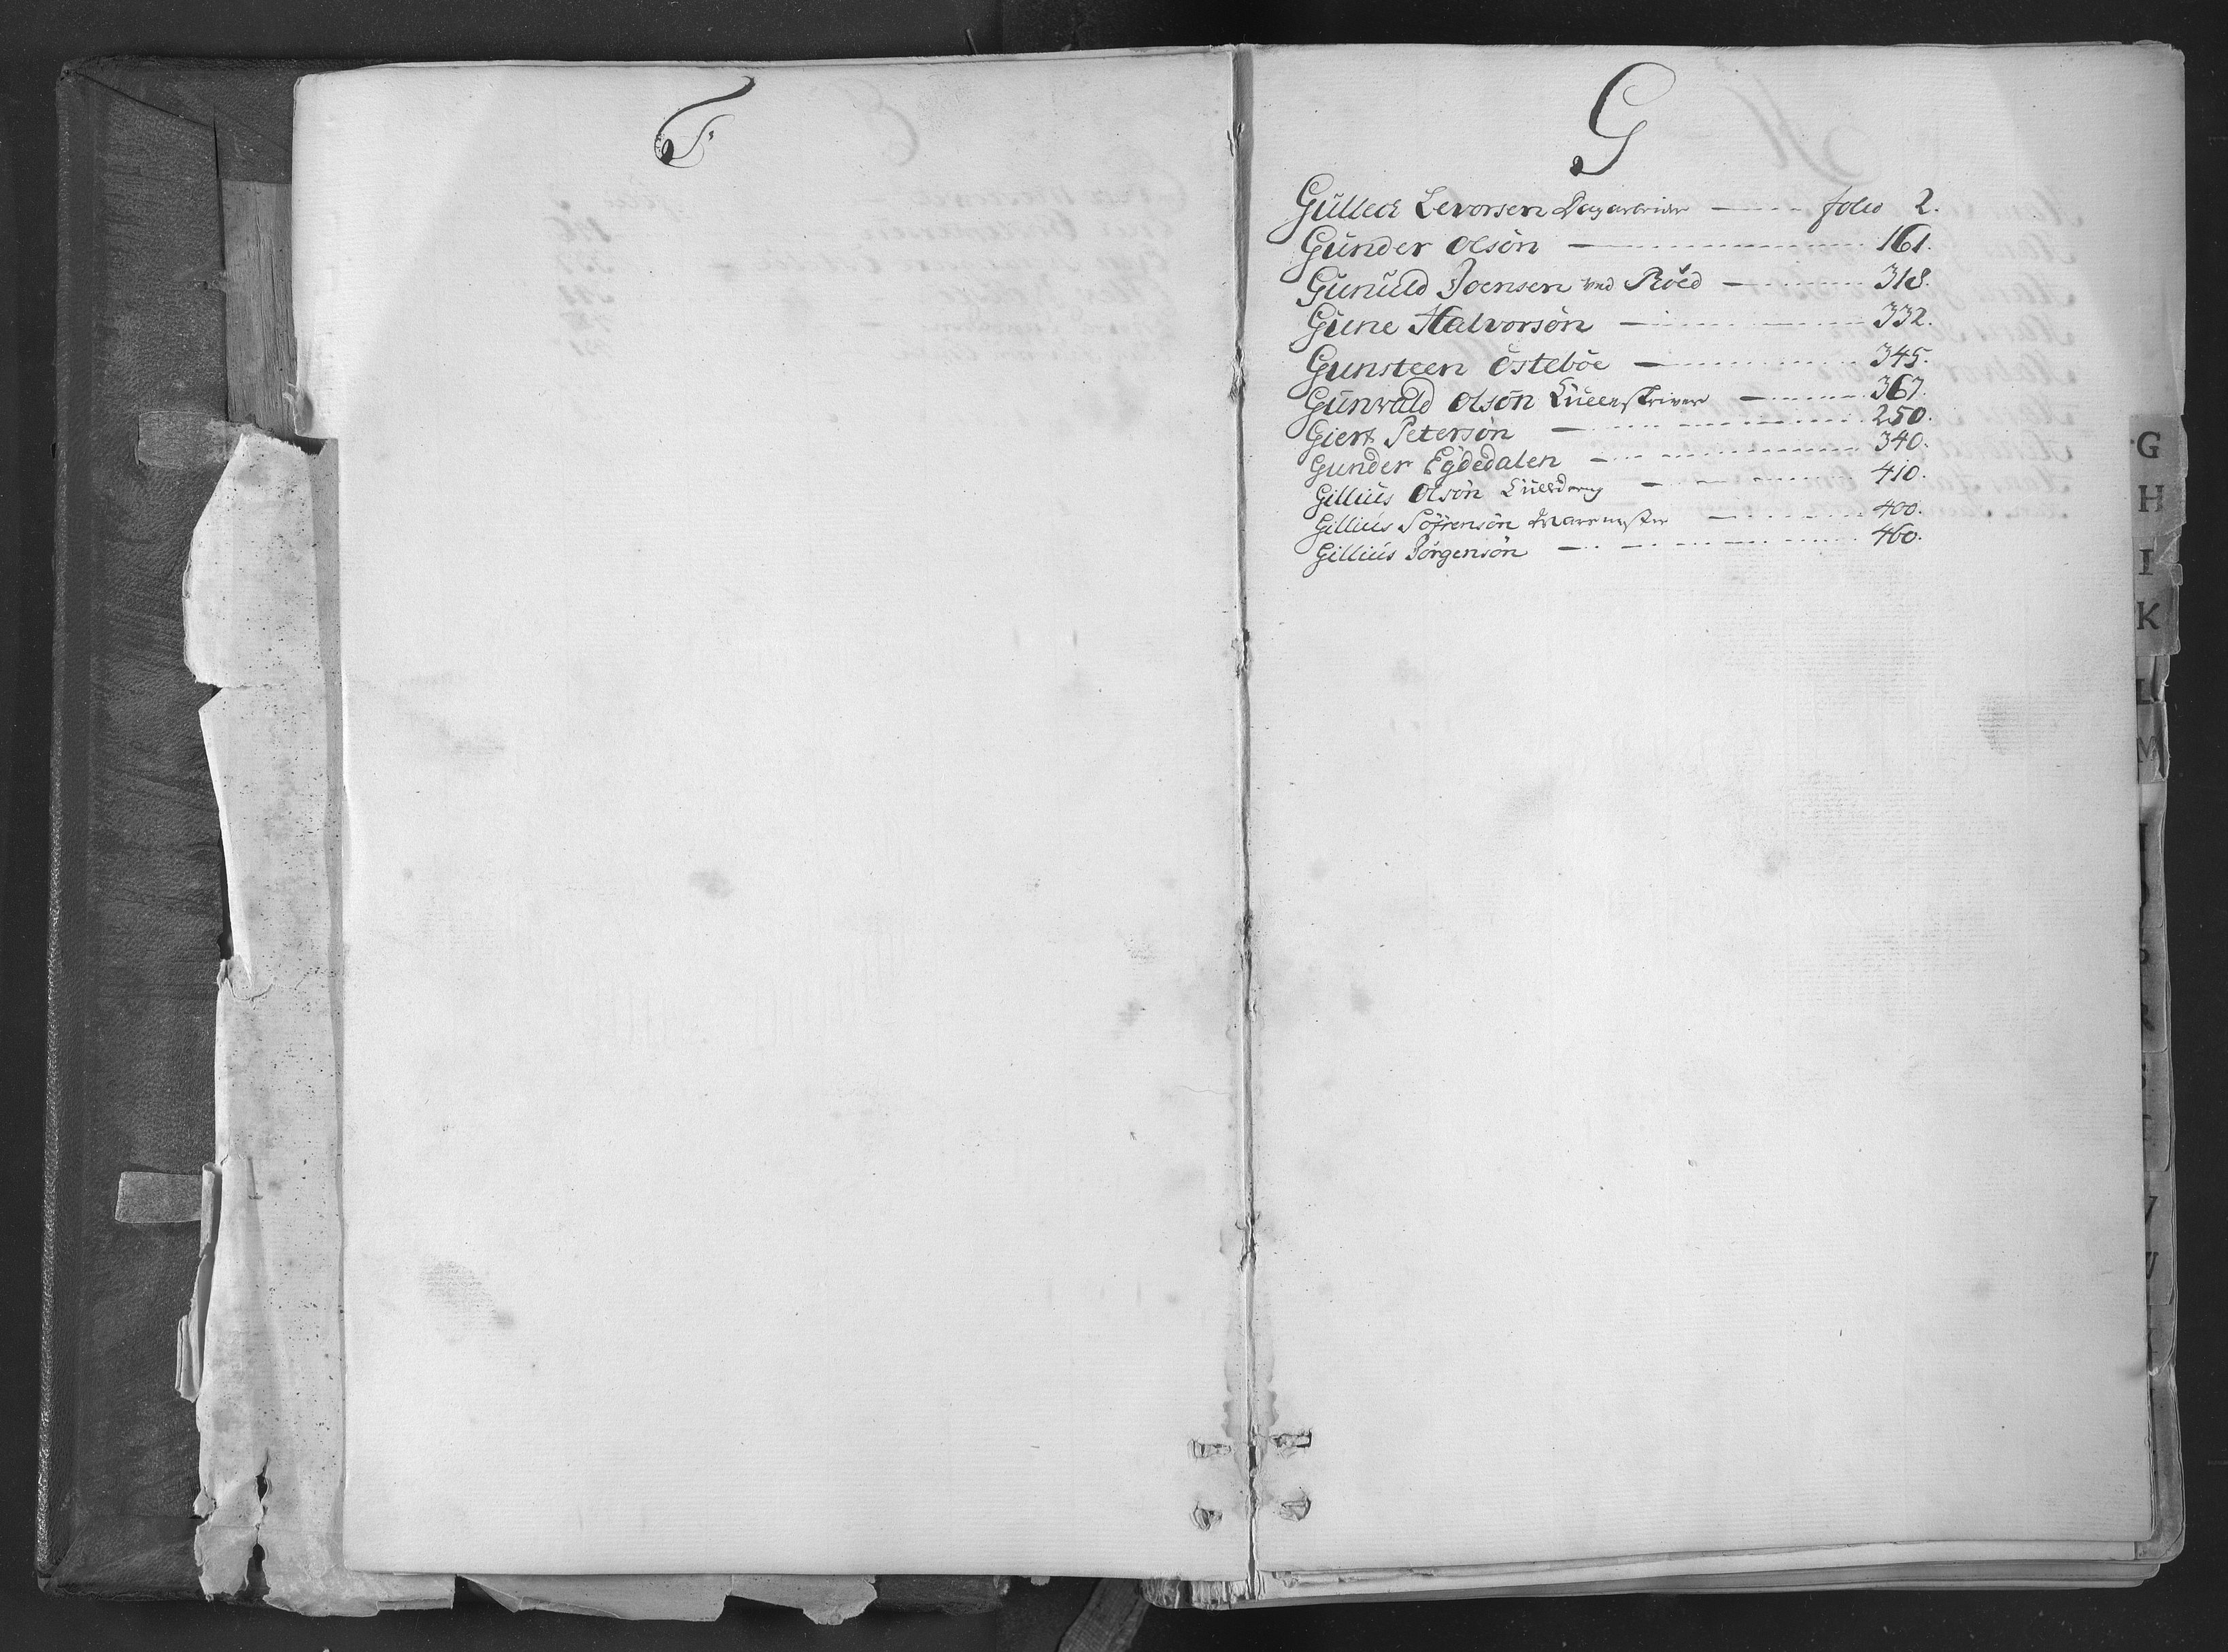 F
G
Gülleck Levorsen Dagarbeider — folio 2.
Günder Olsön — 161.
Gunuld Joensen ved Röed — 318.
Gune Halvorsön — 332.
Gunsteen Östeböe — 345.
Gunwald Olsön Kullenskriver — 367.
Giert Petersön — 250.
Gunder Egdedalen — 340.
Gillius Olsön — 410.
Gillius Sörrensön — 400.
Gillius Jörgensön — 460.
G
H
I
K
L
M